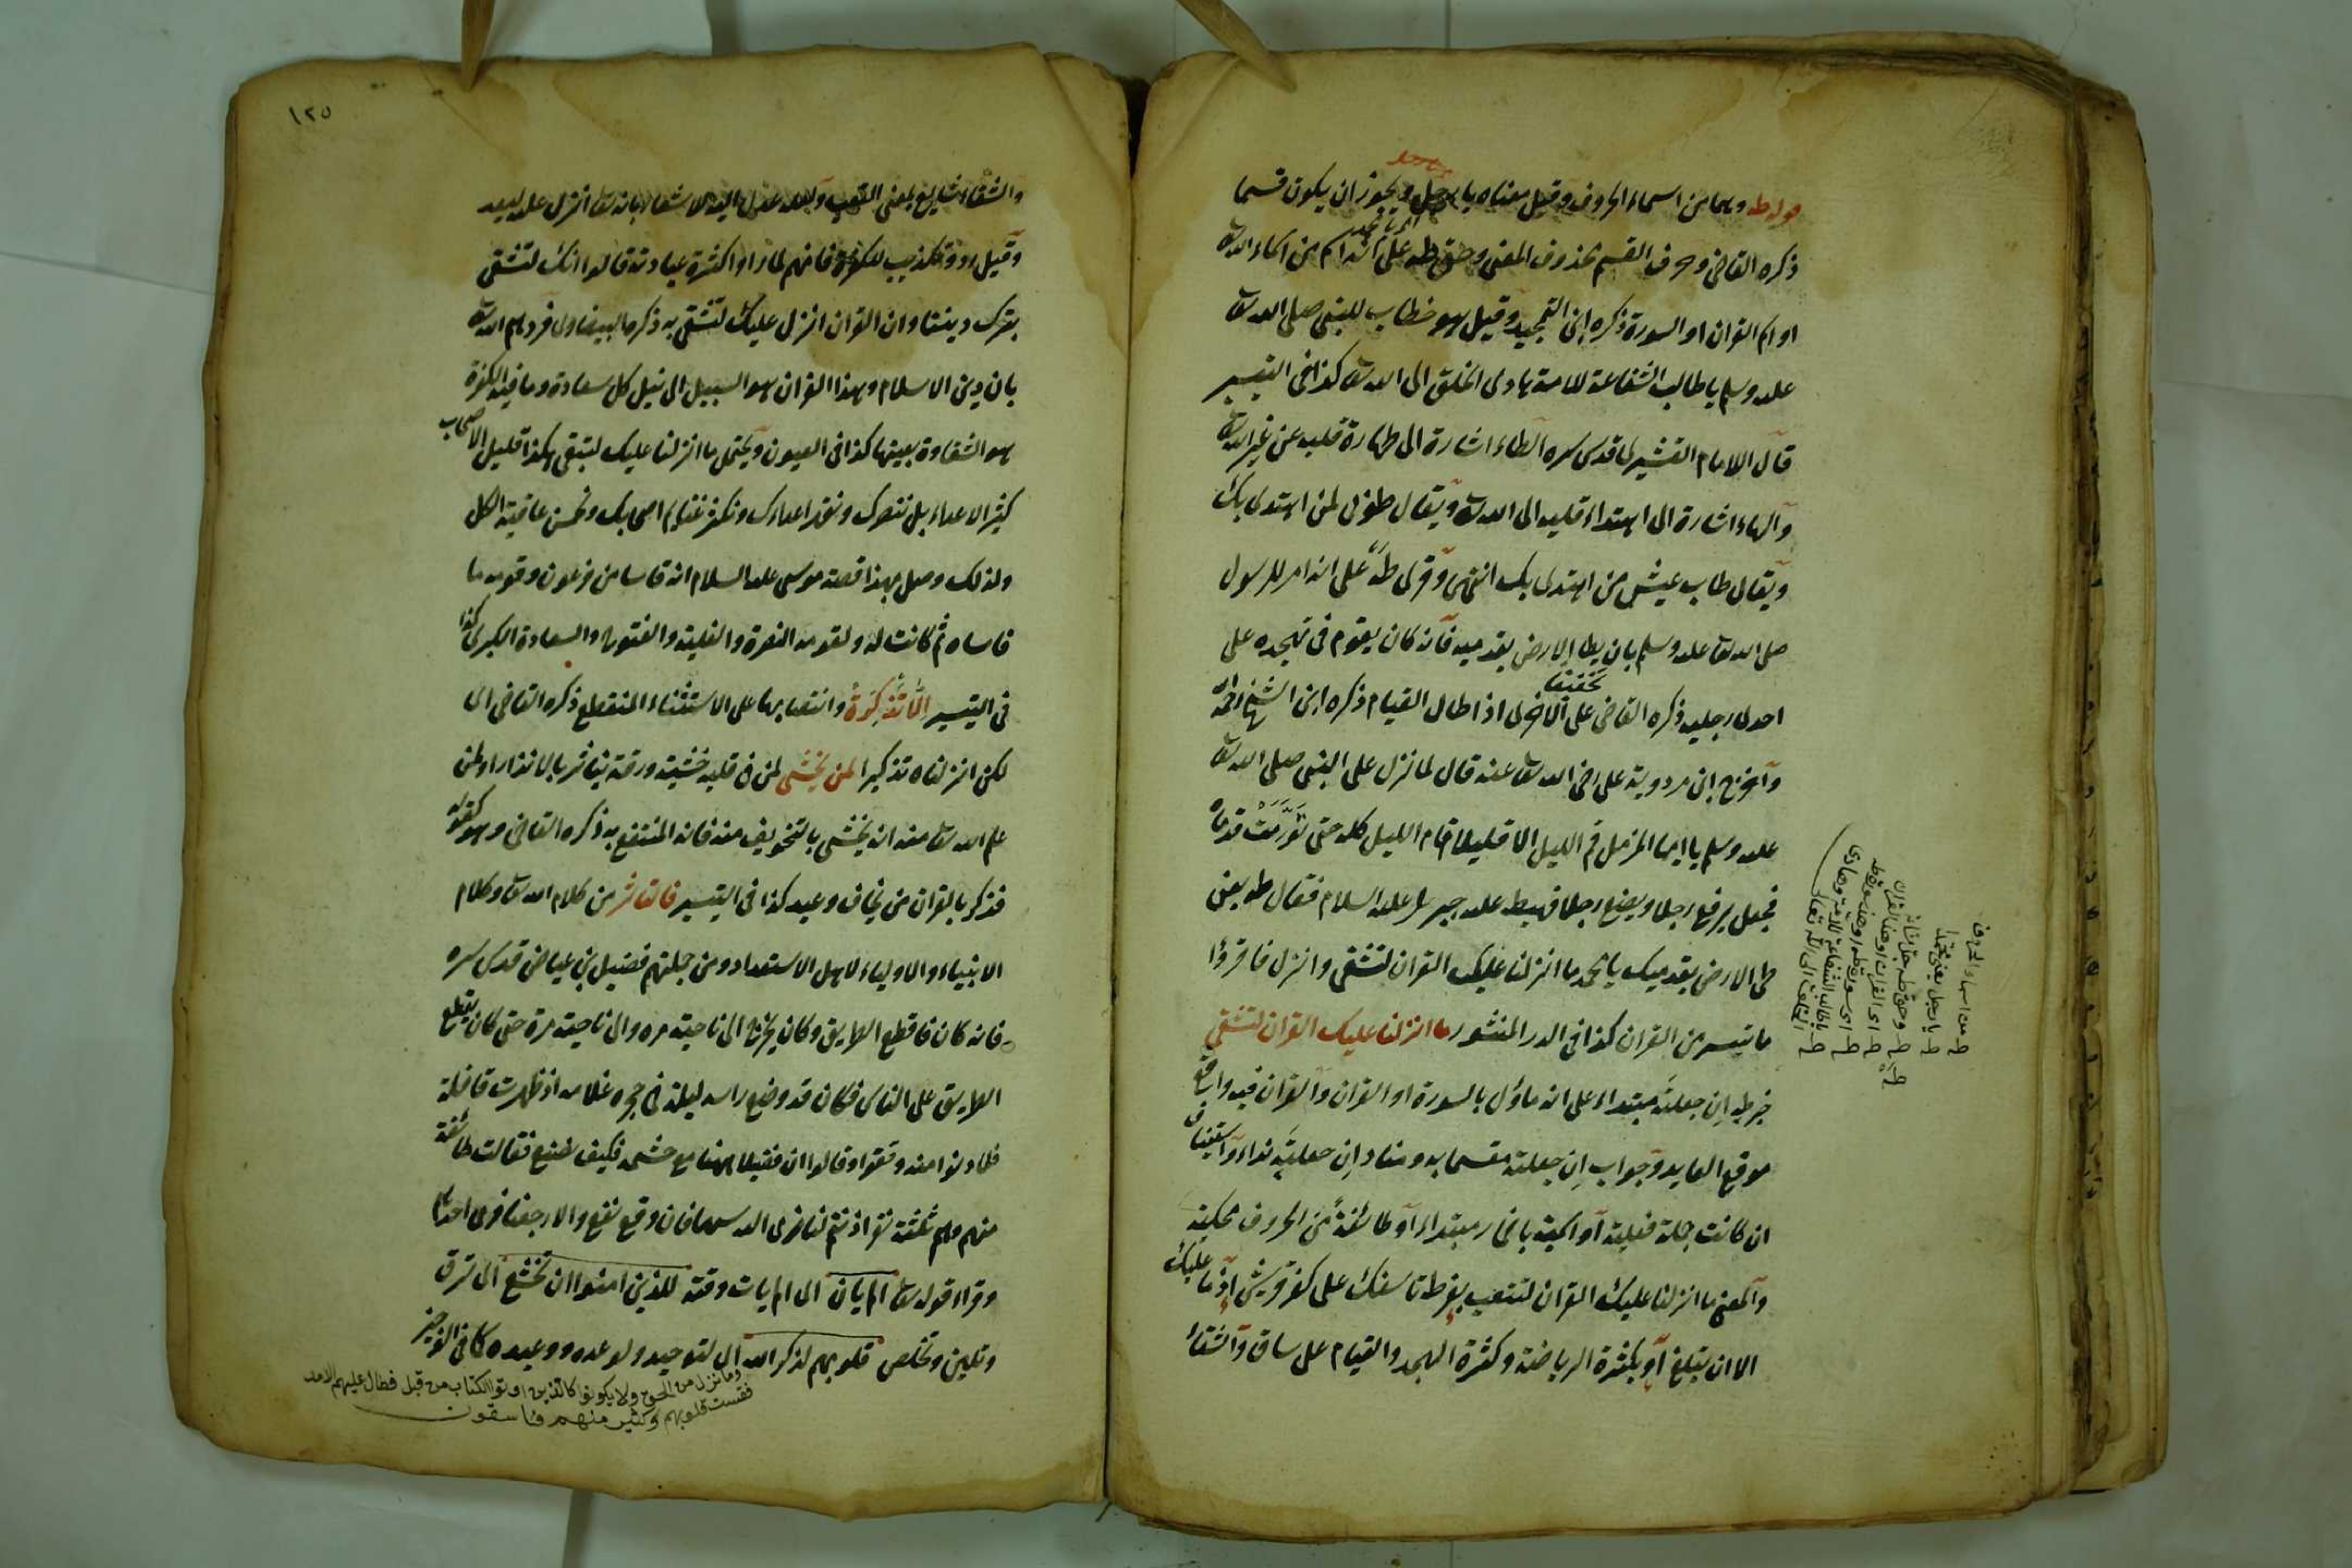 قوله طه وهما من اسماء الحروف وقيل معناه يا رجل ويجوز ان يكون قسما
ذكره القاضى وحرف القسم محذوف المعنى وحق طه على انه اسم من اسماء الله تعالى
او اسم القران او السورة ذكره ابن التمجيد وقيل هو خطاب للنبى صلى الله تعالى
عليه وسلم يا طالب الشفاعة للامة يا هادى الخلق الى الله تعالى كذا فى التيسير
قال الامام القشيرى قدس سره الطاء اشارة الى طهارة قلبه عن غير الله تعالى
والهاء اشارة الى اهتداء قلبه الى الله تعالى ويقال طوبى لمن اهتدى بك
ويقال طاب عيش من اهتدى بك انتهى وقرى طَهْ على انه امر للرسول
صلى الله تعالى عليه وسلم بان يطا الارض بقدميه فانه كان يقوم فى تهجده على
احدى رجليه ذكره القاضى على الاخرى اذا طال القيام ذكره ابن الشيخ رحمه الله
تخفيفا
واخرج ابن مردوية على رضى الله تعالى عنه قال لما نزل على النبى صلى الله تعالى
عليه وسلم يا ايها المزمل قم الليل الا قليلا قام الليل كله حتى تَوَرَّمَتْ قدماه
فجعل يرفع رجلا ويضع رجلا فهبط عليه جبريل عليه السلام فقال طه يعنى
طى الارض بقدميك يا محمد ما انزلنا عليك القران لتشقى وانزل فاقرؤا
ما تيسر من القران كذا فى الدر المنثور ما انزلنا عليك القران لتشقى
خبر طه ان جعلته مبتداء على انه ماؤل بالسورة او القران والقران فيه واقع
موقع العايد وجواب ان جعلته مقسما به ومناد ان جعلته نداء واستيناف
ان كانت جملة فعلية او اسمية باضمار مبتداء او طائفة من الحروف محكية
والمعنى ما انزلنا عليك القران لتتعب بفرط تاسفك على كفر قريش اذ ما عليك
الا ان تبلغ او بكثرة الرياضة وكثرة التهجد والقيام على ساق والشقاء
طه من اسماء الحروف
طه يا رجل يعنى محمدا
طه وحق طه جل شانه
طه اى القران او هذا القران
طه اى سورة طه او هذه سورة طه
طه يا طالب الشفاعة للامة وهادى
الخلق الى الله تعالى
١٢٥
والشقاء شايع بمعنى التعب ولعله عدل اليه للاشعار بانه تعالى انزل عليه ليسعد
وقيل رد وتكذيب للكفرة فانهم لما راوا كثرة عبادته قالوا انك لتشقى
بترك ديننا وان القران انزل عليك لتشقى به ذكرهما البيضاوى فردهم الله تعالى
بان دين الاسلام وهذا القران هو السبيل الى نيل كل سعادة وما فيه الكفرة
هو الشقاوة بعينها كذا فى العيون ويحتمل ما انزلنا عليك لتبقى هكذا قليل الاصحاب
كثير الاعداء بل ننصرك ونقهر اعداءك ونكثر غنايم اصحابك ونحسن عاقبة الكل
ولذلك وصل بهذا قصة موسى عليه السلام انه قاسا من فرعون وقومه ما
قاساه ثم كانت له ولقومه النصرة والغلبة والفتوح والسعادة الكبرى كذا
فى التيسير الا تذكرة وانتصابها على الاستثناء المنقطع ذكره القاضى اى
لكن انزلناه تذكيرا لمن يخشى لمن فى قلبه خشية ورقة يتاثر بالانذار او لمن
علم الله تعالى منه ان يخشى بالتخويف منه فانه المنتفع به ذكره القاضى وهو كقوله
فذكر بالقران من يخاف وعيد كذا فى التيسير فالتاثر من كلام الله تعالى وكلام
الانبياء والاولياء لاهل الاستعداد ومن جملتهم فضيل بن عياض قدس سره
فانه كان قاطع الطريق وكان يخرج الى ناحية مرة والى ناحية مرة حتى كان يقطع
الطريق على الناس فكان قد وضع راسه ليلة فى حجره غلامه اذ ظهرت قافلة
فلما دنوا منه وقفوا وقالوا ان فضيلا ههنا مع حشمه فكيف نصنع فقالت طائفة
منهم وهم ثلثة نفر اذنتم لنا نرمى الله سهما فان وقع نقع والا رجعنا فرمى احدهم
وقراء قوله تعالى الم يان الى الم يات وقته للذين امنوا ان تخشع اى ترق
وتلين وتخلص قلوبهم لذكر الله اى لتوحيده ولوعده ووعيده كما فى الوجيز
وما نزل من الحق ولا يكونوا كالذين اوتوا الكتاب من قبل فطال عليهم الامد
فقست قلوبهم وكثير منهم فاسقون